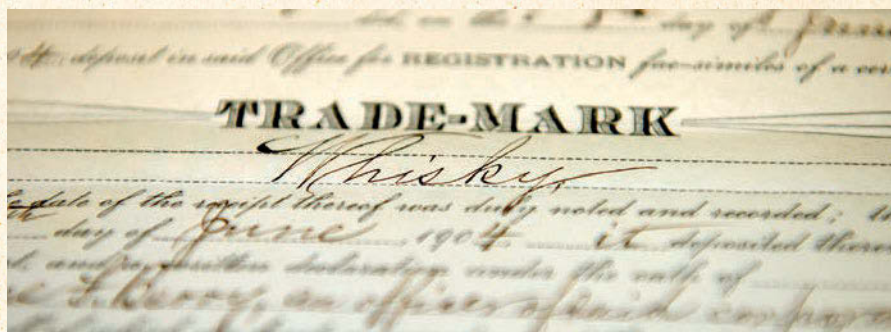 day of June
deposit in said Office for REGISTRATION fac-similes of a
TRADE-MARK
Whisky,
date of the receipt thereof was duly noted and recorded;
day of June 1904 it deposited
written declaration under the oath of
an officer of said